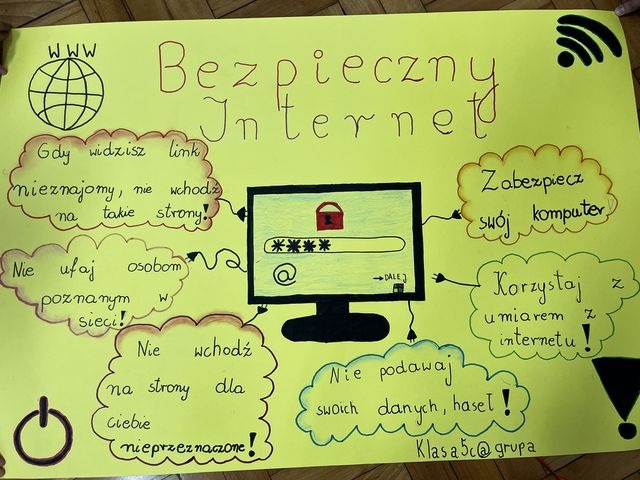 WWW
Bezpieczny
Internet
Gdy widzisz link
nieznajomy, nie wchodź
na takie strony!
Nie ufaj osobom
poznanym w
sieci!
Nie wchodź
na strony dla
ciebie
nieprzeznaczone!
****
@
→DALEJ
Zabezpiecz
swój komputer
Korzystaj z
umiarem z
internetu!
Nie podawaj
swoich danych, haseł!
Klasa5c@grupa